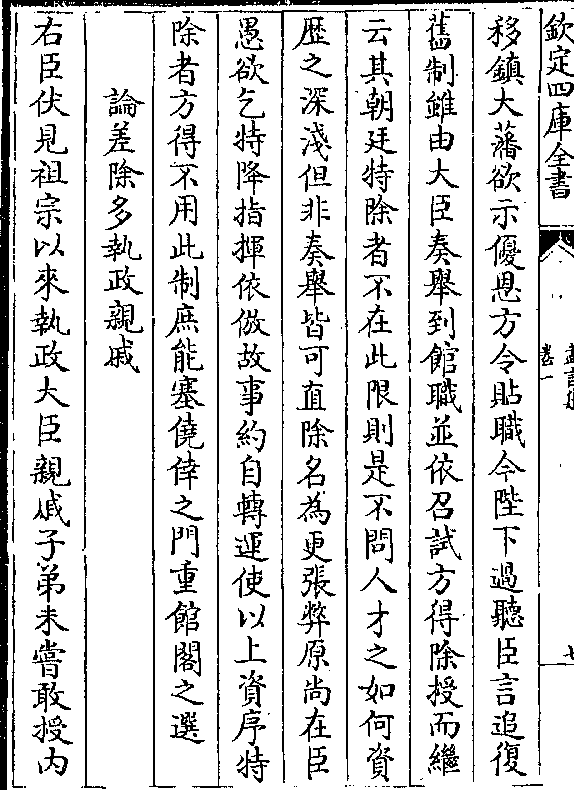 欽定四庫全書
盡言集
卷一
七
移鎮大藩欲示優恩方令貼職今陛下過聽臣言追復
舊制雖由大臣奏舉到館職並依召試方得除授而繼
云其朝廷特除者不在此限則是不問人才之如何資
歴之深淺但非奏舉皆可直除名為更張弊原尚在臣
愚欲乞特降指揮依倣故事約自轉運使以上資序特
除者方得不用此制庶能塞僥倖之門重館閣之選
論差除多執政親戚
右臣伏見祖宗以來執政大臣親戚子弟未嘗敢授内